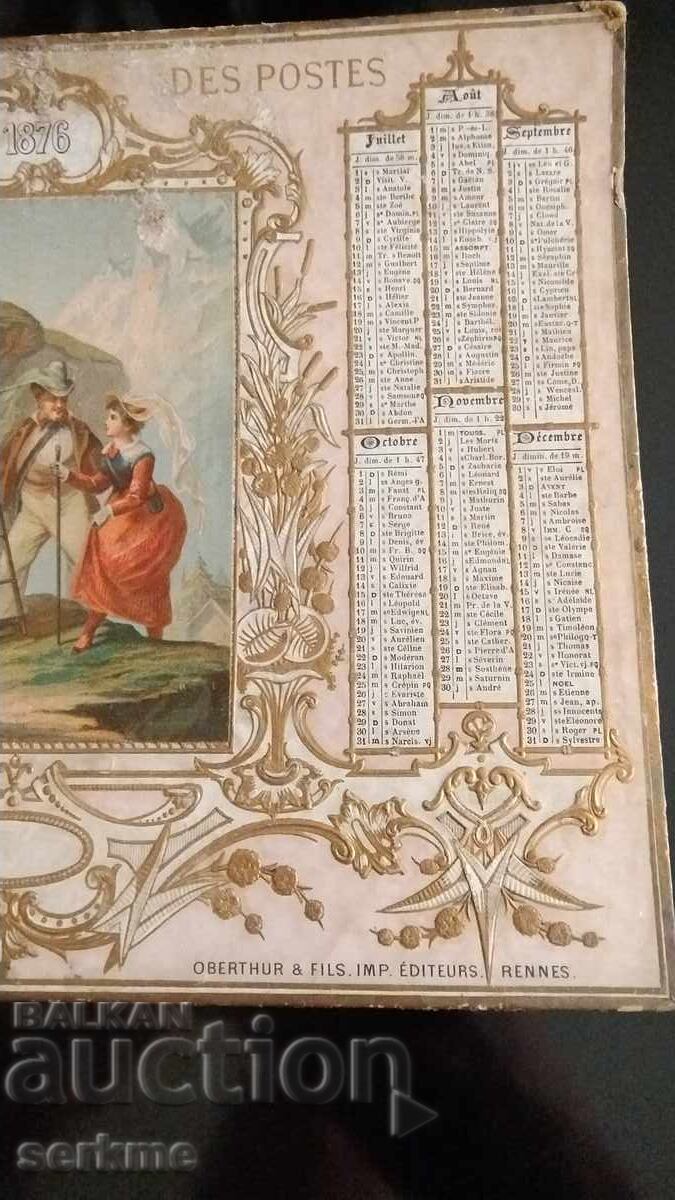 DES POSTES
1876
Juillet
J. dim. de 58 m.
1 s s Martial
2 D Visit. V.
3 l s Anatole
4 m ste Berthe
5 m ste Zoé
6 j s Domin. PL
7 v s Aubierge
8 s ste Virginie
9 D s Cyrille
10 l ste Félicité
11 m Tr. s Benoît
12 m s Gualbert
13 j s Eugène
14 v s Bonave. DQ
15 s s Henri
16 D s Hélier
17 l s Alexis
18 m s Camille
19 m s Vincent P
20 j ste Marguer
21 v s Victor NL
22 s ste M. Mad.
23 D s Apollin.
24 l ste Christine
25 m s Christoph
26 m ste Anne
27 j ste Natalie
28 v s Samson PQ
29 s ste Marthe
30 D s Abdon
31 l s Germ. d'A
Août
J. dim. de 1 h. 36
1 m s P.-ès-L.
2 m s Alphonse
3 j
4 v s Dominiq.
5 s s Abel PL
6 D Tr. de N. S.
7 l s Gaëtan
8 m s Justin
9 m s Amour
10 j s Laurent
11 v ste Suzanne
12 s ste Claire DQ
13 D s Hippolyte
14 l s Euseb. vj
15 m ASSOMPT.
16 m s Roch
17 j s Septime
18 v ste Hélène
19 s s Louis NL
20 D s Bernard
21 l ste Jeanne
22 m s Symphor.
23 m ste Sidonie
24 j s Barthél.
25 v s Louis, roi
26 s s Zéphirin PQ
27 D s Césaire
28 l s Augustin
29 m s Médéric
30 m s Fiacre
31 j s Aristide
Septembre
J. dim. de 1 h. 46
1 v s Leu et G.
2 s s Lazare
3 D s Grégoir PL
4 l ste Rosalie
5 m s Bertin
6 m s Onésiph.
7 j s Cloud
8 v Nat. de la V.
9 s s Omer
10 D ste Pulchérie
11 l s Hyacint DQ
12 m s Séraphin
13 m s Maurille
14 j Exal. ste Cr
15 v s Nicomède
16 s s Cyprien
17 D s Lambert NL
18 l ste Sophie
19 m s Janvier
20 m s Eustac. Q-T
21 j s Mathieu
22 v s Maurice
23 s s Lin, pape
24 D s Andoche
25 l s Firmin PQ
26 m ste Justine
27 m s Come, D.
28 j s Wencesl.
29 v s Michel
30 s s Jérôme
Octobre
J. dim. de 1 h. 47
1 D s Rémi
2 l ss Anges g.
3 m s Faust PL
4 m s Franç. d'A
5 j s Constant
6 v s Bruno
7 s s Serge
8 D ste Brigitte
9 l s Denis, év
10 m s Fr. B. DQ
11 m s Quirin
12 j s Wilfrid
13 v s Edouard
14 s s Calixte
15 D ste Thérèsa
16 l s Léopold
17 m ste Edwige NL
18 m s Luc, év.
19 j s Savinien
20 v s Aurélien
21 s ste Céline
22 D s Modéran
23 l s Hilarion
24 m s Raphaël
25 m s Crépin PQ
26 j s Evariste
27 v s Abraham
28 s s Simon
29 D s Donat
30 l s Arsène
31 m s Narcis. vj
Novembre
J. dim. de 1 h. 22
1 m TOUSS. PL
2 j Les Morts
3 v s Hubert
4 s s Charl. Bor.
5 D s Zacharie
6 l s Léonard
7 m s Ernest
8 m
9 j s Mathurin
10 v s Juste
11 s s Martin
12 D s René
13 l s Brice, év
14 m ste Philom.
15 m s Eugénie
16 j s Edmond NL
17 v s Agnan
18 s s Maxime
19 D ste Elisab.
20 l s Octave
21 m Pr. de la V.
22 m ste Cécile
23 j s Clément
24 v ste Flora PQ
25 s ste Cather.
26 D s Pierre d'A
27 l s Séverin
28 m s Sosthène
29 m s Saturnin
30 j s André
Décembre
J. dimin. de 19 m.
1 v s Eloi PL
2 s ste Aurélie
3 D AVENT
4 l ste Barbe
5 m s Sabas
6 m s Nicolas
7 j s Ambroise
8 v IMM. C DQ
9 s s Léocadie
10 D ste Valérie
11 l s Damase
12 m ste Constanc
13 m ste Lucie
14 j s Nicaise
15 v s Irénée NL
16 s s Adélaïde
17 D ste Olympe
18 l s Gatien
19 m s Timoléon
20 m ste Philogo Q-T
21 j s Thomas
22 v s Honorat
23 s ste Vict. vj. PQ
24 D ste Irmine
25 l NOEL
26 m s Etienne
27 m s Jean, ap.
28 j ss Innocents
29 v ste Eléonore
30 s s Roger PL
31 D s Sylvestre
OBERTHUR & FILS. IMP. ÉDITEURS. RENNES.
BALKAN
auction
serkme